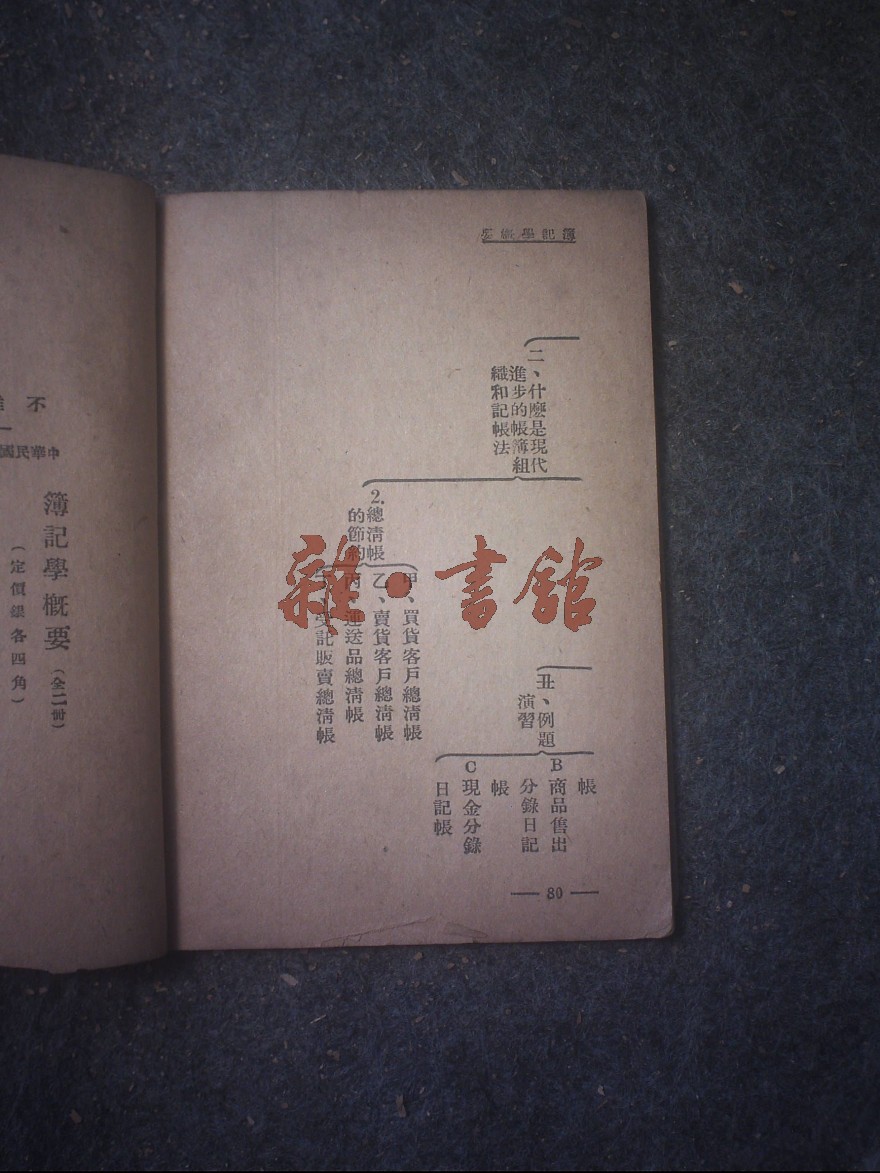 簿記學概要
二、什麼是現代
進步的帳簿組
織和記帳法
2.總清帳
的節約
甲、買貨客戶總清帳
乙、賣貨客戶總清帳
丙、運送品總清帳
受託販賣總清帳
丑、例題
演習
帳
B商品售出
分錄日記
帳
C現金分錄
日記帳
80
雜·書館
不
中華民國
簿記學概要(全二冊)
(定價銀各四角)